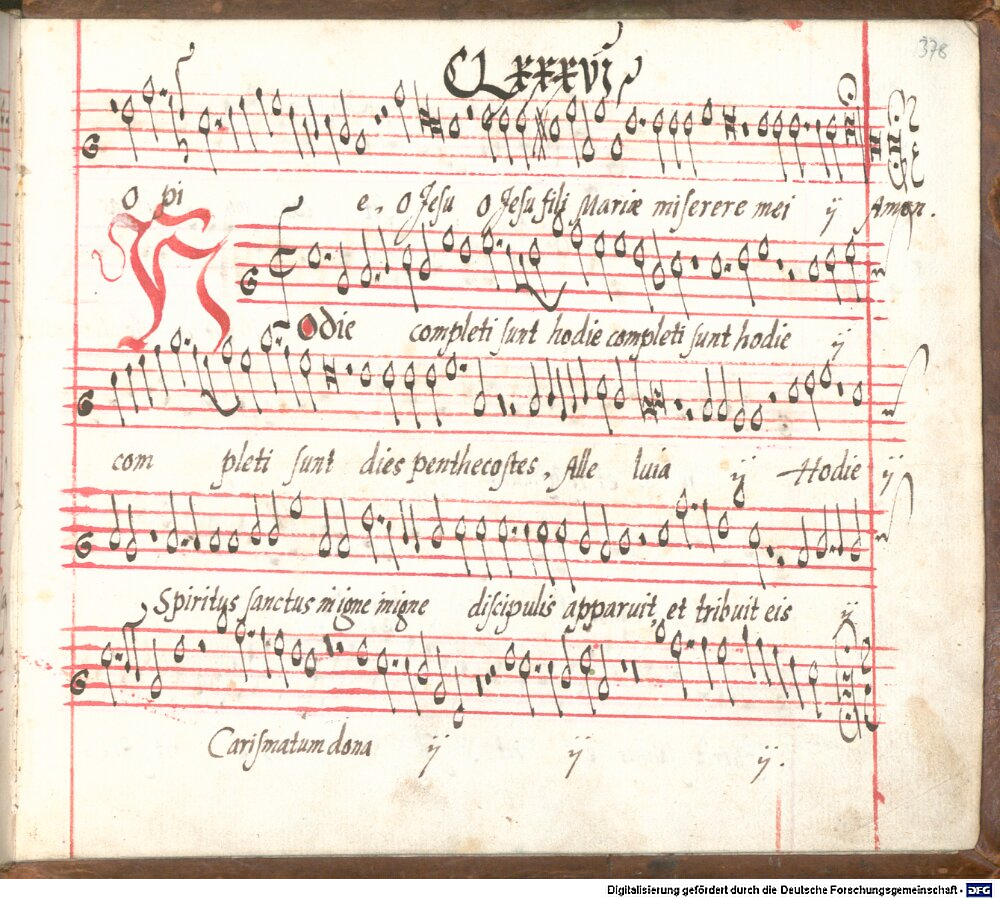 CLxxxvj
378
O pi e, O Jesu O Jesu fili Mariæ miserere mei ij Amen.
Hodie completi sunt hodie completi sunt hodie ij
com pleti sunt dies penthecostes, Alle luia ij Hodie ij
Spiritus sanctus in igne in igne discipulis apparuit, et tribuit eis ij
Carismatum dona ij ij ij.
Digitalisierung gefördert durch die Deutsche Forschungsgemeinschaft - DFG